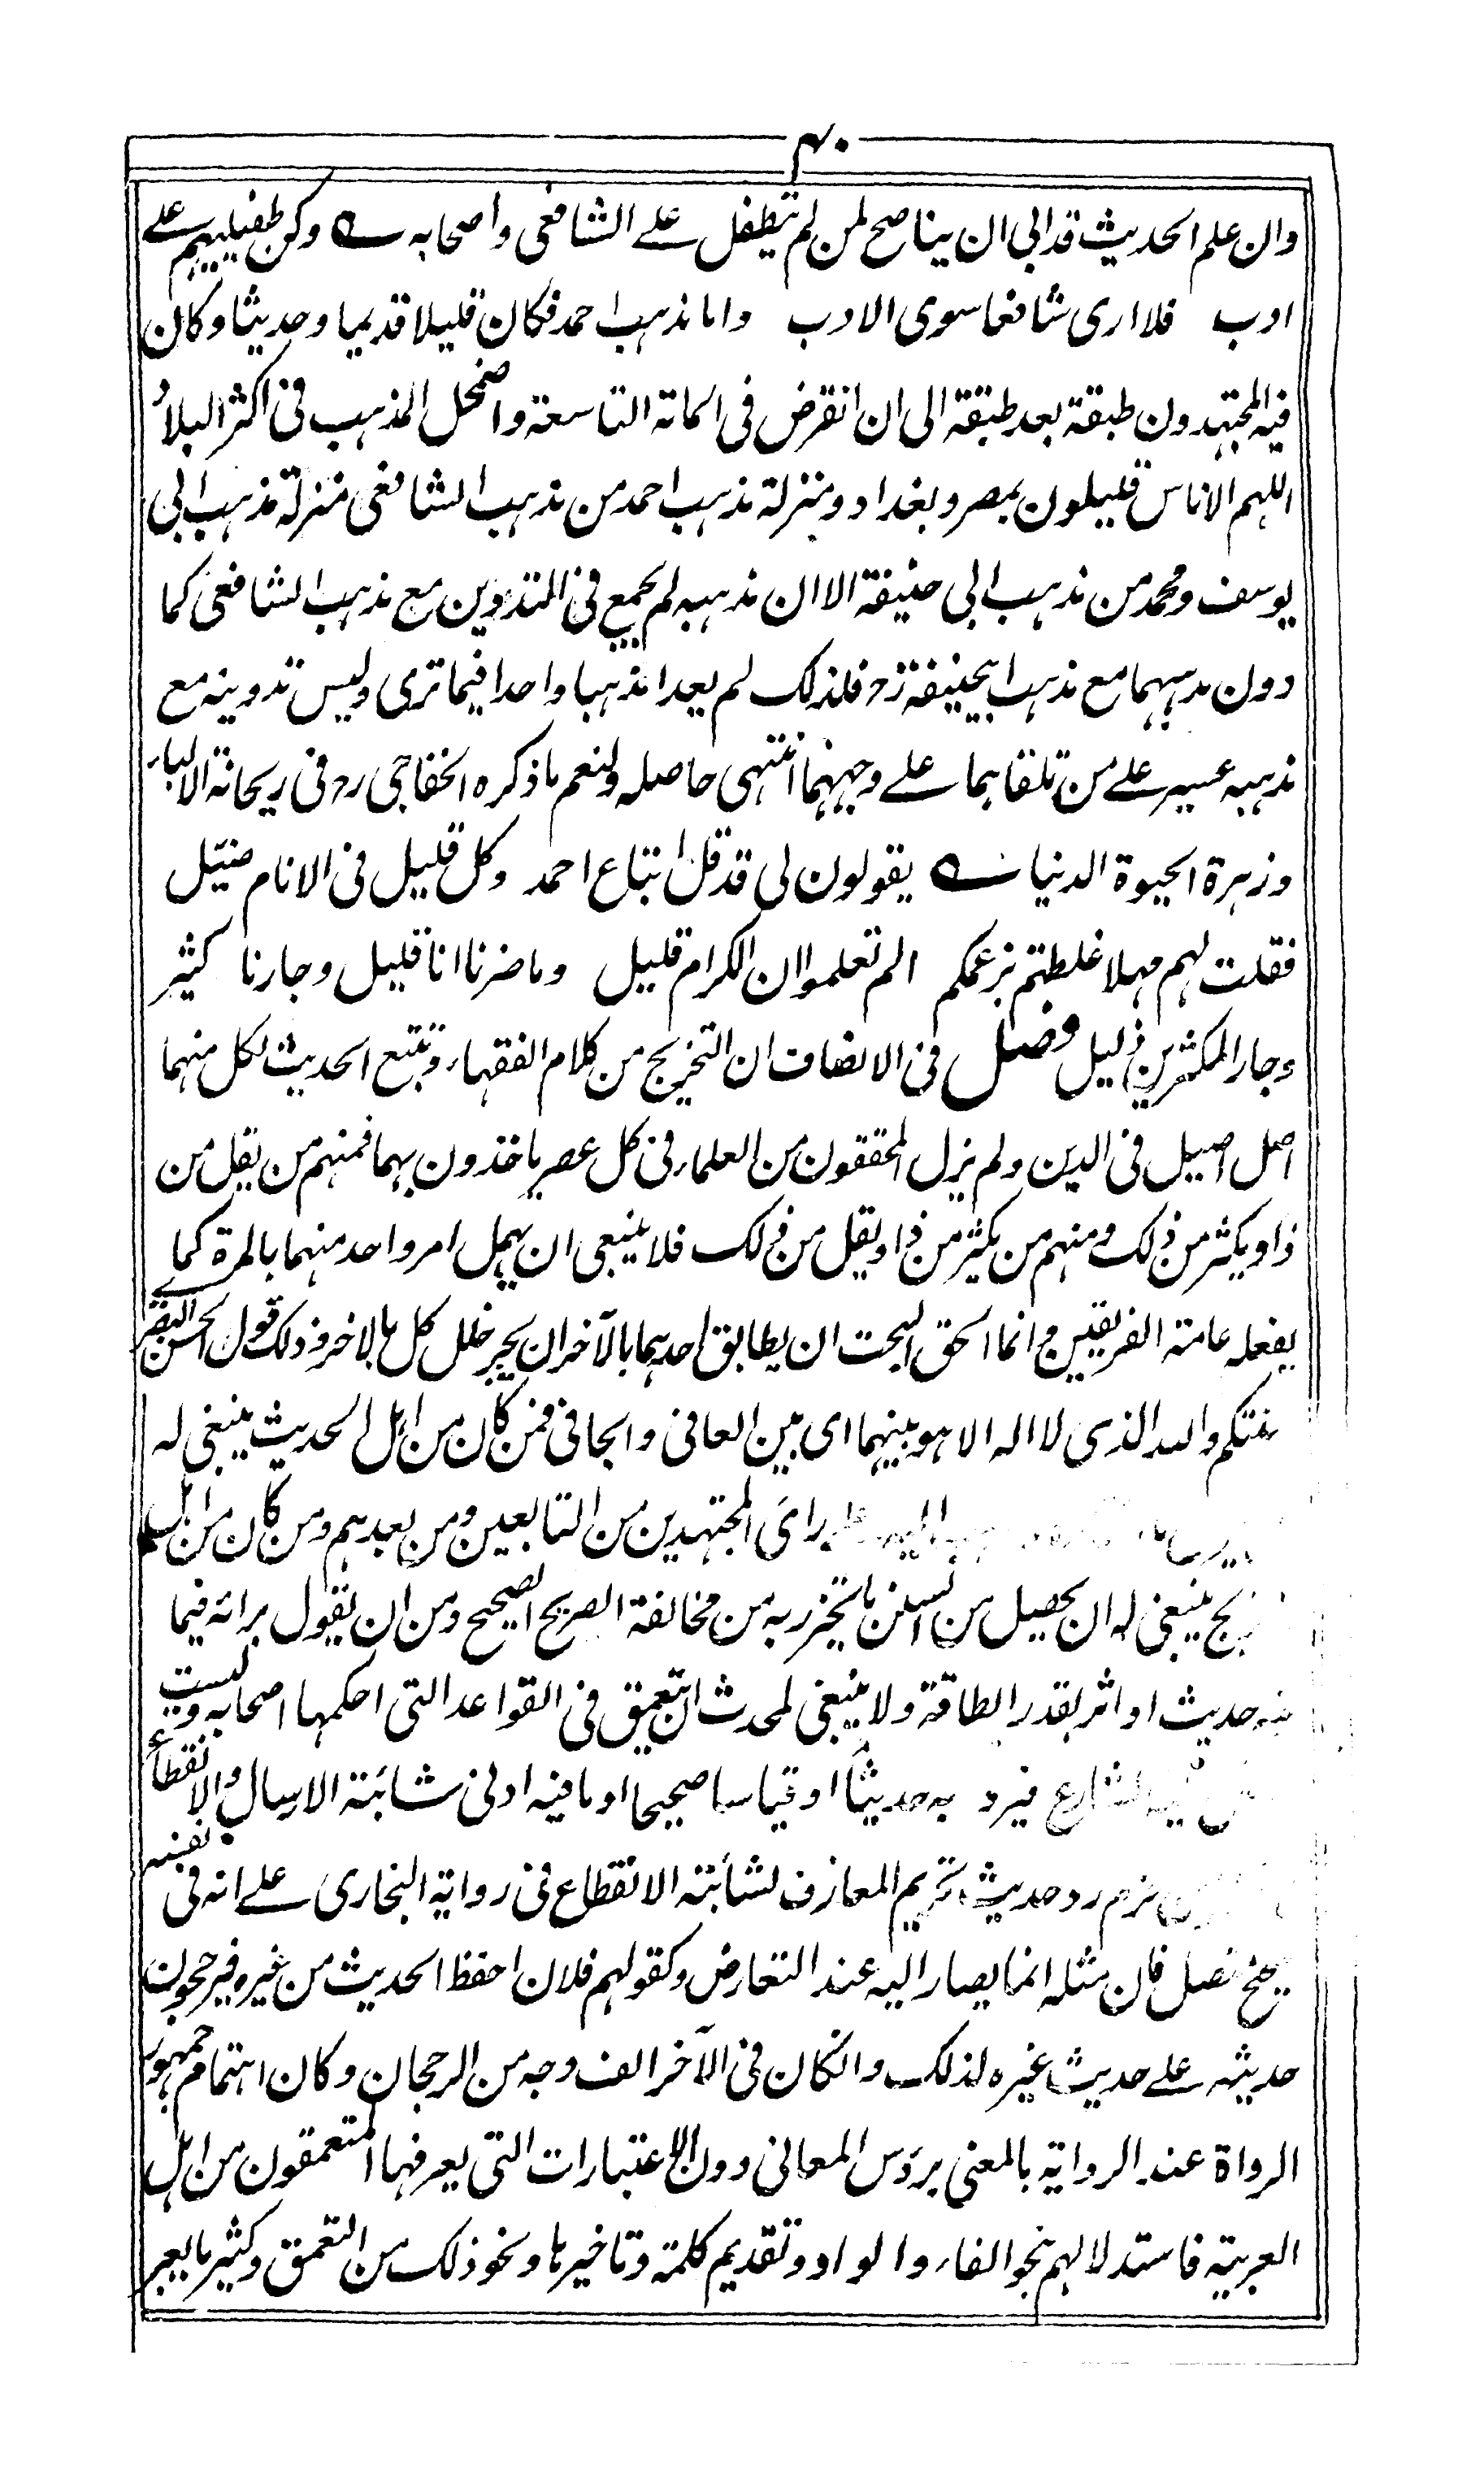 ۴۰
وان علم الحديث قد ابى ان يناصح لمن لم يتطفل على الشافعى واصحابه ؎ وكن طفيليهم على
ادب فلا ارى شافعا سوى الادب واما مذهب احمد فكان قليلا قديما وحديثا وكان
فيه المجتهدون طبقة بعد طبقة الى ان انقرض فى المائة التاسعة واضمحل المذهب فى اكثر البلاد
اللهم الا ناس قليلون بمصر وبغداد ومنزلة مذهب احمد من مذهب الشافعى منزلة مذهب ابى
يوسف ومحمد من مذهب ابى حنيفة الا ان مذهبه لم يجمع فى التدوين مع مذهب الشافعى كما
دون مذهبهما مع مذهب ابيحنيفة رح فلذلك لم يعدا مذهبا واحدا فيما ترى وليس تدوينه مع
مذهبه عسير على من تلقاهما على وجههما انتهى حاصله ولنعم ما ذكره الخفاجى رح فى ريحانة الالباء
وزهرة الحيوة الدنيا ؎ يقولون لى قد قل اتباع احمد وكل قليل فى الانام ضئيل
فقلت لهم مهلا غلطتم بزعمكم الم تعلموا ان الكرام قليل وما ضرنا انا قليل وجارنا كثير
وجار المكثرين ذليل فصل فى الانصاف ان التخريج من كلام الفقهاء وتتبع الحديث لكل منهما
اصل اصيل فى الدين ولم يزل المحققون من العلماء فى كل عصر ياخذون بهما فمنهم من يقل من
ذا ويكثر من ذلك ومنهم من يكثر من ذا ويقل من ذلك فلا ينبغى ان يهمل امر واحد منهما بالمرة كما
يفعله عامة الفريقين وانما الحق البحت ان يطابق احدهما بالآخر ان يجبر خلل كل بالاخر وذلك قول الحسن البصرى
سنتكم والله الذى لا اله الا هو بينهما اى بين العافى والجافى فمن كان من اهل الحديث ينبغى له
براى المجتهدين من التابعين ومن بعدهم ومن كان من اهل
ينبغى له ان يحصل من السنن ما يتحرز به من مخالفة الصريح الصحيح ومن ان يقول برائه فيما
فيه حديث او اثر بقدر الطاقة ولا ينبغى لمحدث ان يتعمق فى القواعد التى احكمها اصحابه وليست
الشارع فيرد به حديثا او قياسا صحيحا او ما فيه ادنى شائبة الارسال والانقطاع
حزم رد حديث تحريم المعازف لشائبة الانقطاع فى رواية البخارى على انه فى نفسه
متصل فان مثله انما يصار اليه عند التعارض وكقولهم فلان احفظ الحديث من غيره فيرجحون
حديثه على حديث غيره لذلك وانكان فى الآخر الف وجه من الرجحان وكان اهتمام جمهور
الرواة عند الرواية بالمعنى بردس المعانى دون الاعتبارات التى يعرفها المتعمقون من اهل
العربية فاستدلالهم بنحو الفاء والواو وتقديم كلمة وتاخيرها ونحو ذلك من التعمق وكثير ما يعبر